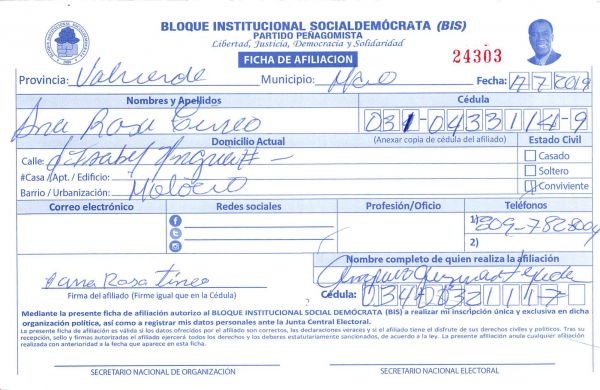 BLOQUE INSTITUCIONAL SOCIALDEMÓCRATA (BIS)
PARTIDO PEÑAGOMISTA
Libertad, Justicia, Democracia y Solidaridad
FICHA DE AFILIACION
24303
Provincia: Valverde Municipio: Mao Fecha: 17/7/2019
Nombres y Apellidos Cédula
Ana Rosa Tineo 031-0433114-9
Domicilio Actual (Anexar copia de cédula del afiliado) Estado Civil
Calle: Isabel
Casado
#Casa /Apt. / Edificio:
Soltero
Barrio / Urbanización:
Conviviente
Correo electrónico Redes sociales Profesión/Oficio Teléfonos
1) 809-782
2)
Nombre completo de quien realiza la afiliación
Ana Rosa Tineo
Firma del afiliado (Firme igual que en la Cédula)
Cédula:
Mediante la presente ficha de afiliación autorizo al BLOQUE INSTITUCIONAL SOCIAL DEMÓCRATA (BIS) a realizar mi inscripción única y exclusiva en dicha
organización política, así como a registrar mis datos personales ante la Junta Central Electoral.
La presente ficha de afiliación es válida si los datos ofrecidos por el afiliado son correctos, las declaraciones veraces y si el afiliado tiene el disfrute de sus derechos civiles y políticos. Tras su
recepción, sello y firmas autorizadas el afiliado ejercerá todos los derechos y los deberes estatutariamente sancionados, de acuerdo a la ley. La presente afiliación anula cualquier afiliación
realizada con anterioridad a la fecha que aparece en esta ficha.
SECRETARIO NACIONAL DE ORGANIZACIÓN SECRETARIO NACIONAL ELECTORAL